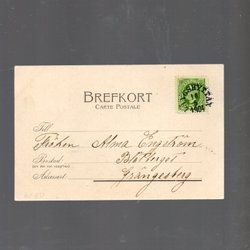 BREFKORT
CARTE POSTALE
Till
Fröken Alma Engström
Bostad
Blötberget
Adressort
Grängesberg